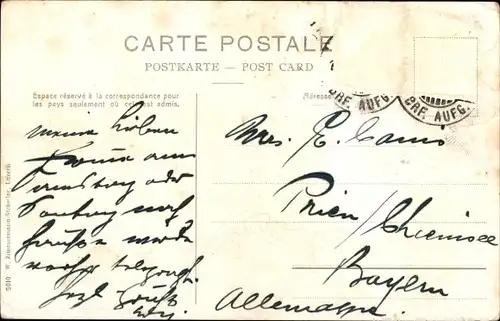 CARTE POSTALE
POSTKARTE — POST CARD
Espace réservé à la correspondance pour
les pays seulement où cela est admis.
Adresse
BRF. AUFG.
BRF. AUFG.
meine Lieben
Komme am
Samstag oder
Sontag nach
Hause werde
vorher telegraph.
Herzl Grüße
Mrs. E.
Prien / Chiemsee
Bayern
Allemagne.